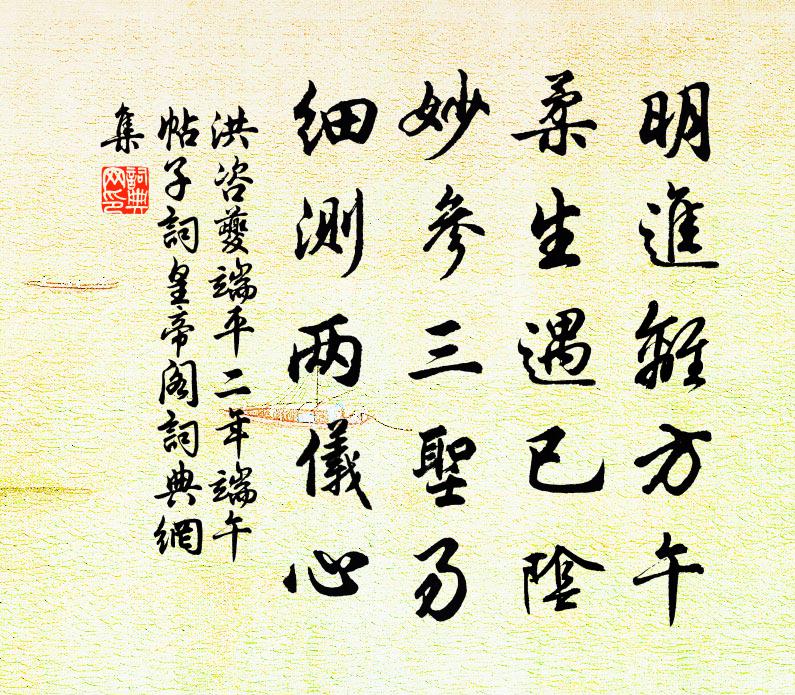 明進離方午
柔生遇已陰
妙參三聖易
細測两儀心
洪咨夔端平二年端午
帖子詞皇帝閣詞典網
集
詞典
网印